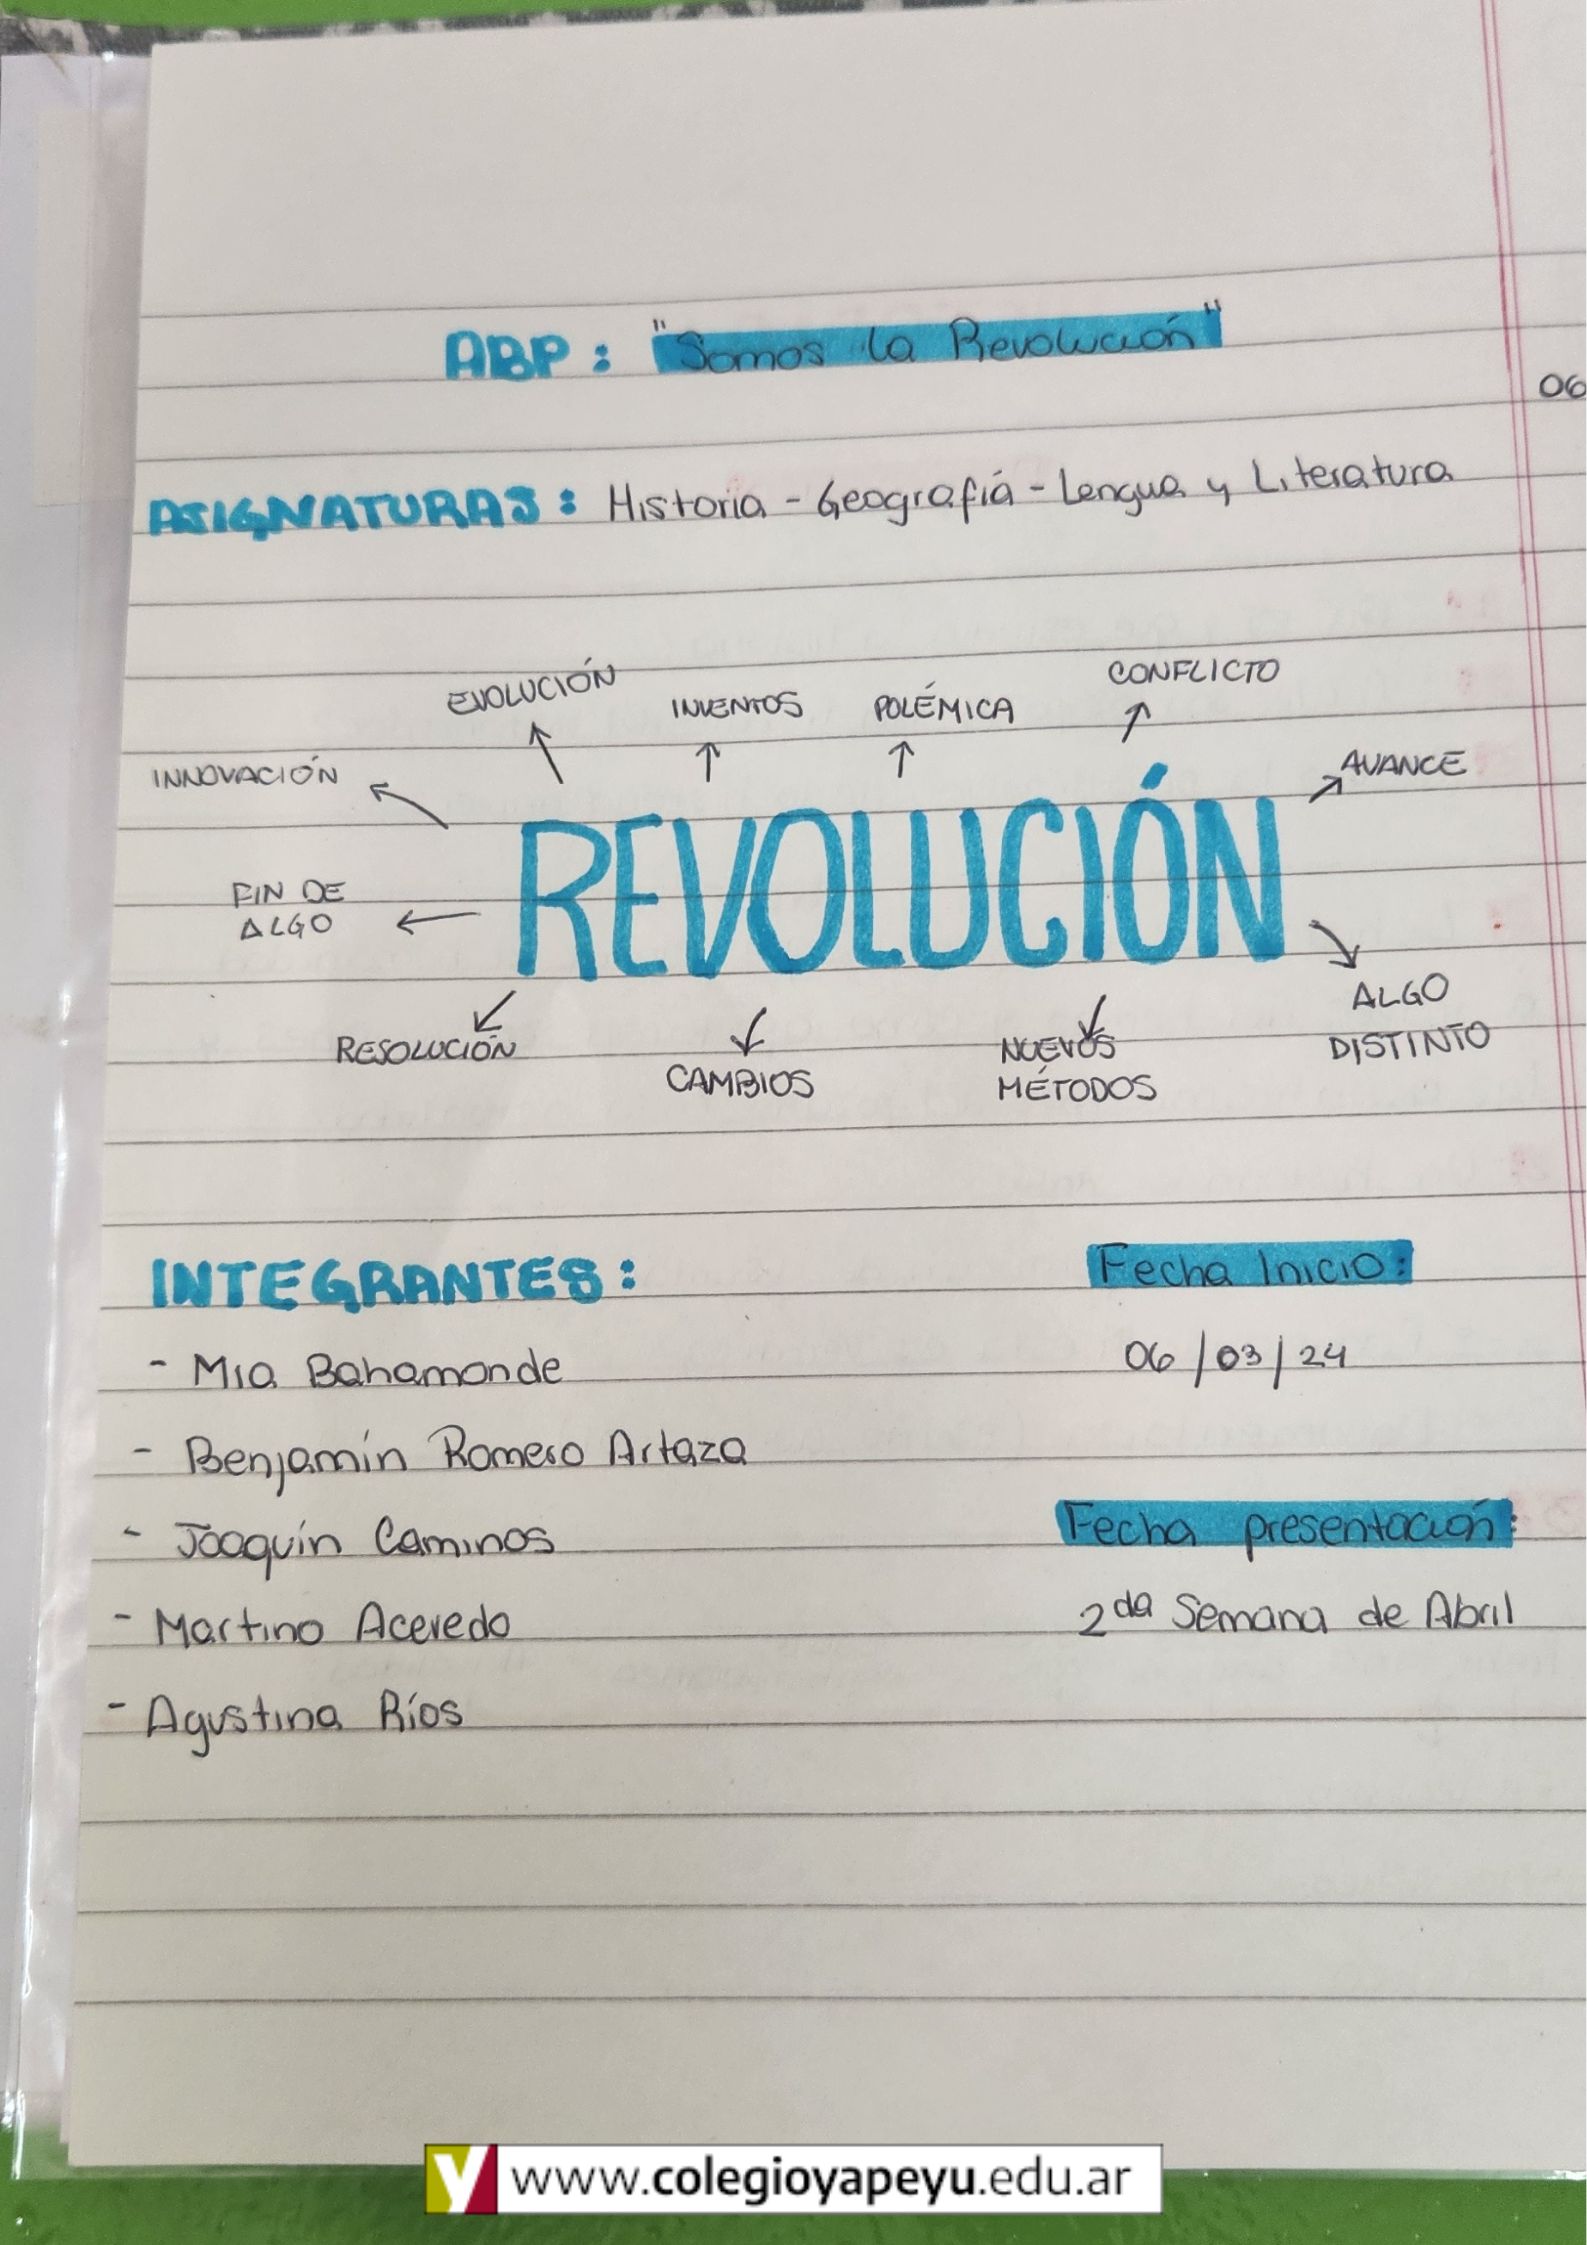 ABP: "Somos la Revolución"
06
ASIGNATURAS: Historia - Geografía - Lengua y Literatura
EVOLUCIÓN
INVENTOS
POLÉMICA
CONFLICTO
INNOVACIÓN
AVANCE
REVOLUCIÓN
FIN DE
ALGO
ALGO
DISTINTO
RESOLUCIÓN
CAMBIOS
NUEVOS
MÉTODOS
INTEGRANTES:
- Mia Bahamonde
- Benjamín Romero Artaza
- Joaquín Caminos
- Martino Acevedo
- Agustina Ríos
Fecha Inicio:
06/03/24
Fecha presentación:
2da Semana de Abril
y www.colegioyapeyu.edu.ar